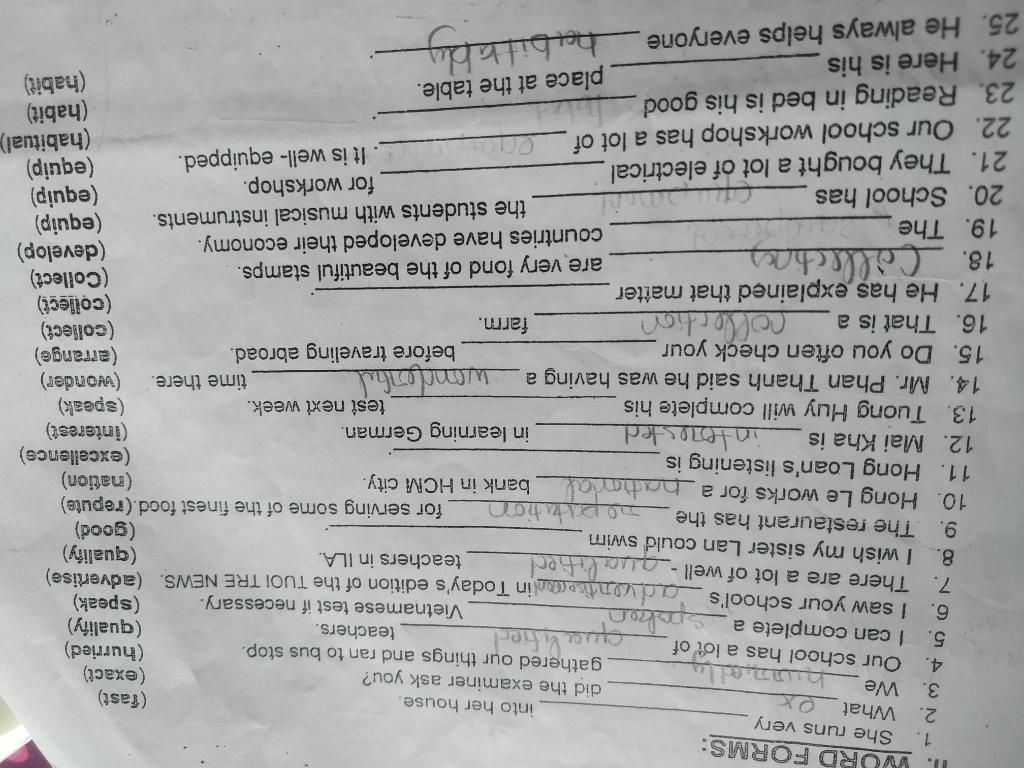 II. WORD FORMS:
1. She runs very ____________ into her house. (fast)
2. What ex____________ did the examiner ask you? (exact)
3. We hurriedly gathered our things and ran to bus stop. (hurried)
4. Our school has a lot of qualified teachers. (qualify)
5. I can complete a spoken Vietnamese test if necessary. (speak)
6. I saw your school's in Today's edition of the TUOI TRE NEWS. (advertise)
7. There are a lot of well - qualified teachers in ILA. (qualify)
8. I wish my sister Lan could swim ____________. (good)
9. The restaurant has the for serving some of the finest food. (repute)
10. Hong Le works for a national bank in HCM city. (nation)
11. Hong Loan's listening is ____________. (excellence)
12. Mai Kha is interested in learning German. (interest)
13. Tuong Huy will complete his ____________ test next week. (speak)
14. Mr. Phan Thanh said he was having a wonderful time there. (wonder)
15. Do you often check your ____________ before traveling abroad. (arrange)
16. That is a collection farm. (collect)
17. He has explained that matter ____________. (collect)
18. are very fond of the beautiful stamps. (Collect)
19. The countries have developed their economy. (develop)
20. School has equipment the students with musical instruments. (equip)
21. They bought a lot of electrical ____________ for workshop. (equip)
22. Our school workshop has a lot of. It is well- equipped. (equip)
23. Reading in bed is his good habit. (habitual)
24. Here is his ____________ place at the table. (habit)
25. He always helps everyone habittably. (habit)